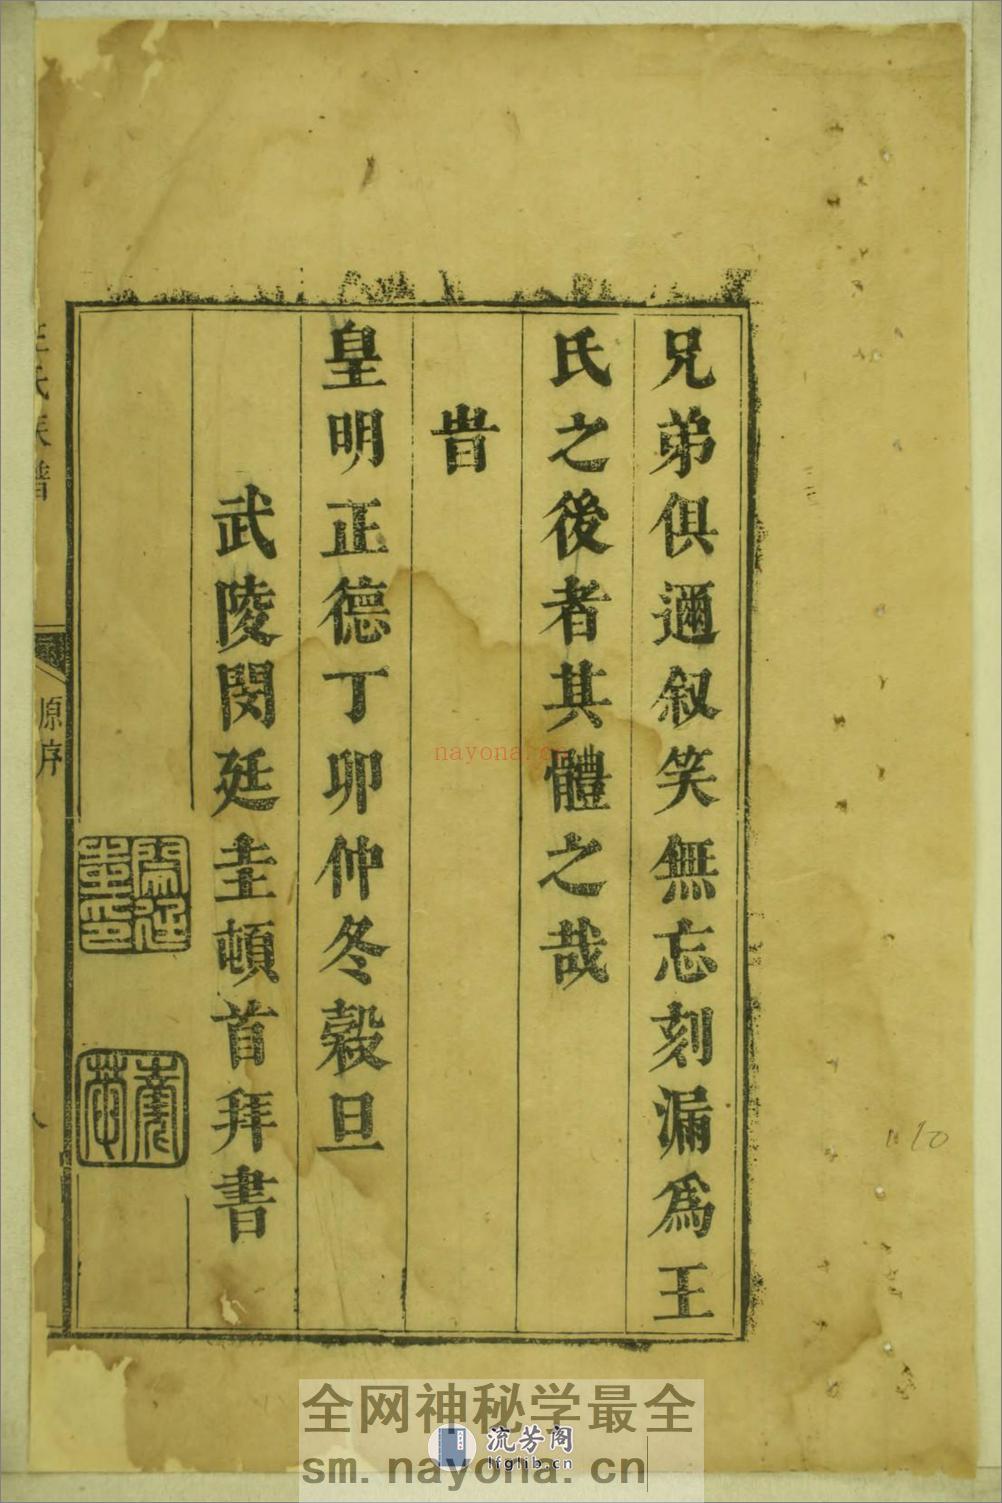 兄弟俱邇叙笑無忘刻漏爲王
氏之後者其體之哉
旹
皇明正德丁卯仲冬穀旦
武陵閔廷圭頓首拜書
王氏族譜
原序
閔廷
圭印
10
nayona.cn
全网神秘学最全
流芳阁
lfglib.cn
sm.nayona.cn